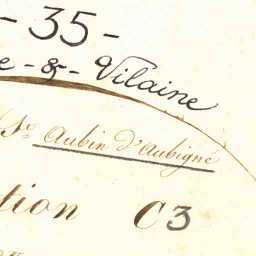 - 35 -
e - & - Vilaine
St Aubin d'Aubigné
tion C3